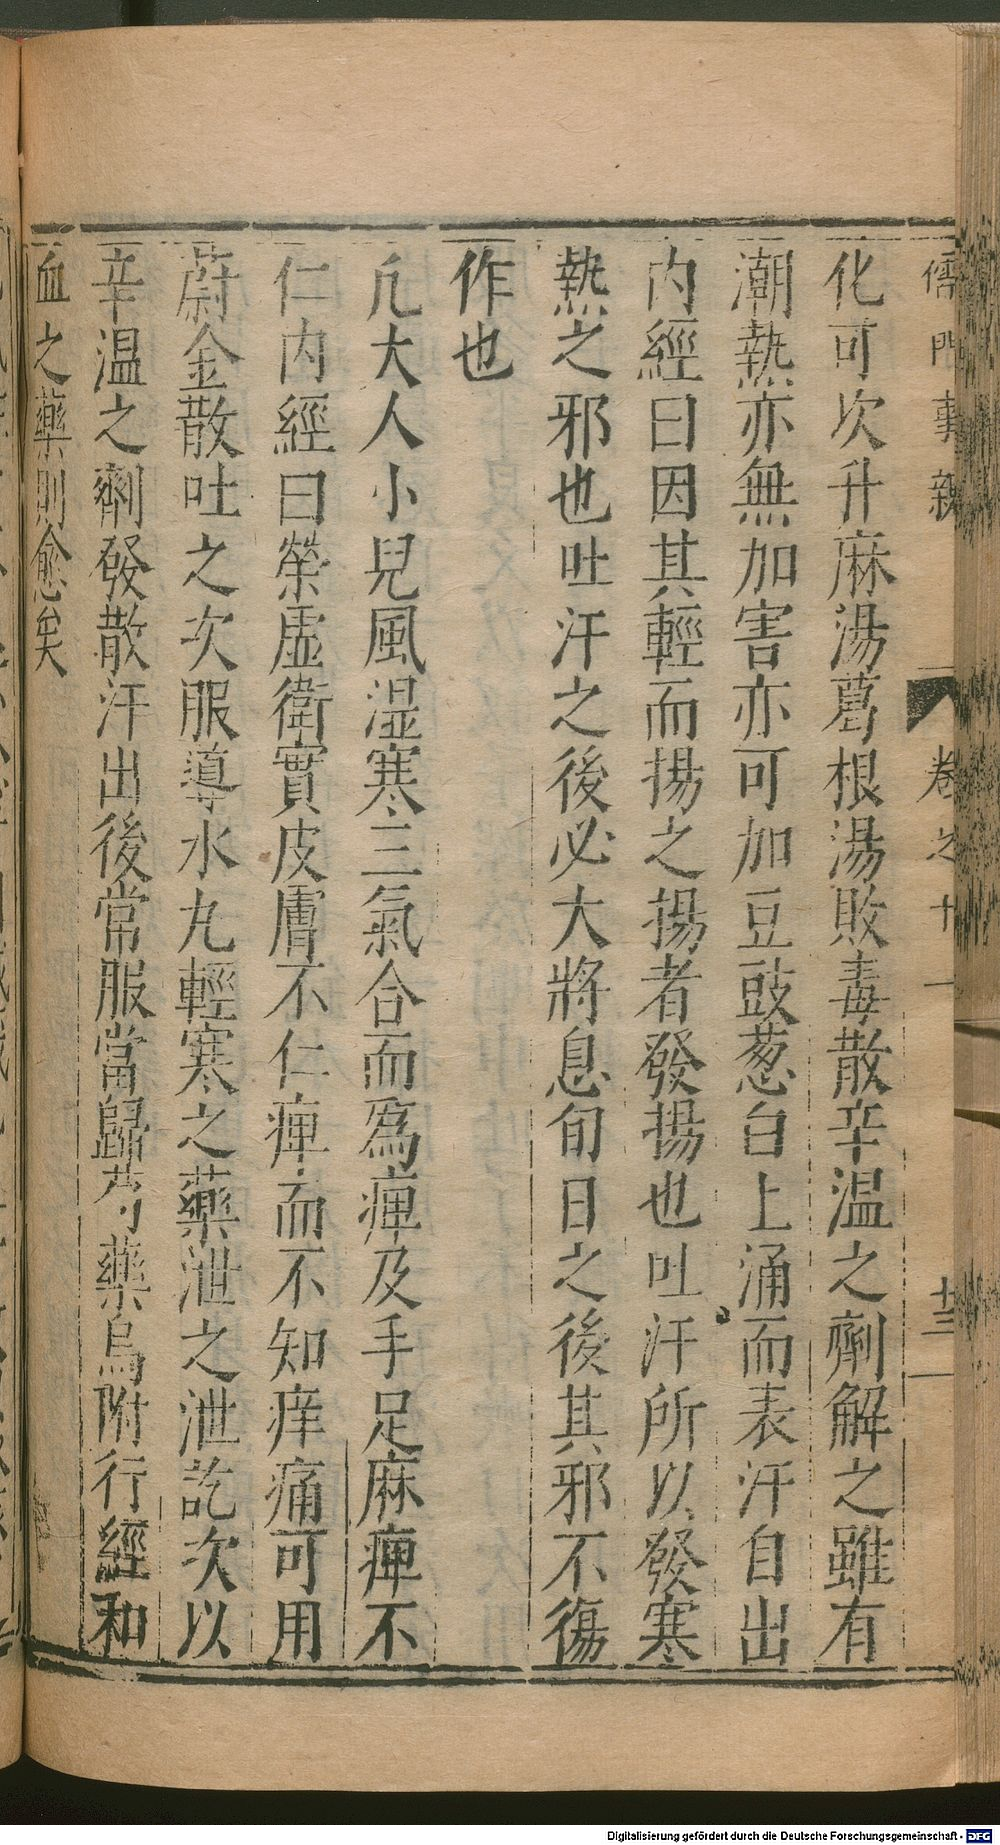 儒門事親 卷之十一 廿三
化可次升麻湯葛根湯敗毒散辛温之劑解之雖有
潮熱亦無加害亦可加豆豉葱白上涌而表汗自出
内經曰因其輕而揚之揚者發揚也吐汗所以發寒
熱之邪也吐汗之後必大將息旬日之後其邪不傷
作也
凢大人小兒風湿寒三氣合而爲痺及手足麻痺不
仁内經曰榮虛衛實皮膚不仁痺而不知痒痛可用
蔚金散吐之次服導水丸輕寒之藥泄之泄訖次以
辛温之劑發散汗出後常服當歸芍藥烏附行經和
血之藥則愈矣
Digitalisierung gefördert durch die Deutsche Forschungsgemeinschaft - DFG